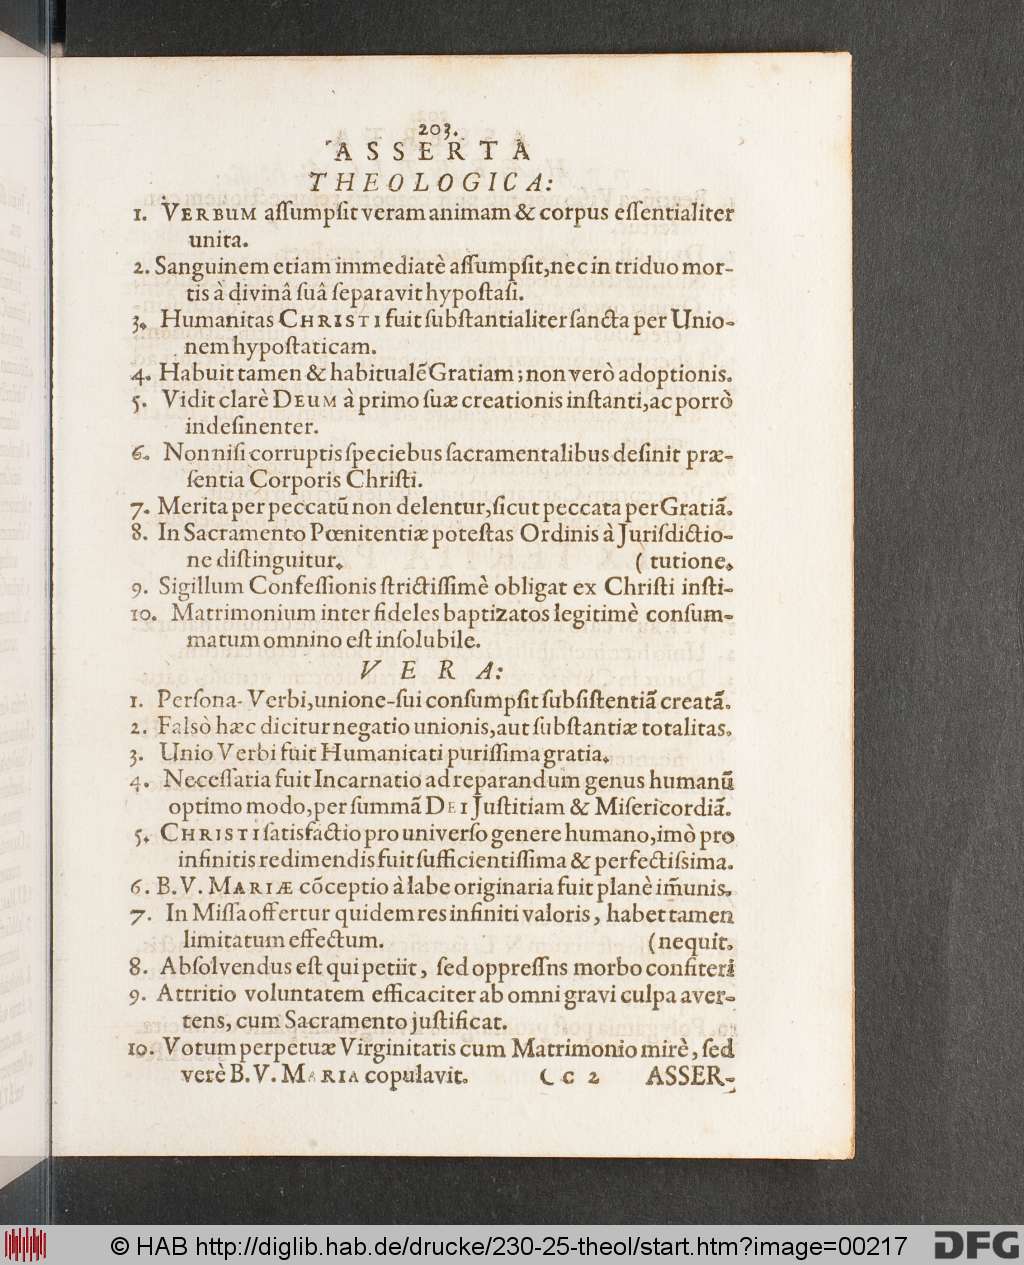 203.
ASSERTA
THEOLOGICA:
1. VERBUM aſſumpſit veram animam & corpus eſſentialiter
unita.
2. Sanguinem etiam immediatè aſſumpſit, nec in triduo mor-
tis à divinâ ſuâ ſeparavit hypoſtaſi.
3. Humanitas CHRISTI fuit ſubſtantialiter ſancta per Unio-
nem hypoſtaticam.
4. Habuit tamen & habitualẽ Gratiam; non verò adoptionis.
5. Vidit clarè DEUM à primo ſuæ creationis inſtanti, ac porrò
indeſinenter.
6. Non niſi corruptis ſpeciebus ſacramentalibus deſinit præ-
ſentia Corporis Chriſti.
7. Merita per peccatũ non delentur, ſicut peccata per Gratiã.
8. In Sacramento Pœnitentiæ poteſtas Ordinis à Juriſdictio-
ne diſtinguitur. (tutione.
9. Sigillum Confeſſionis ſtrictiſſimè obligat ex Chriſti inſti-
10. Matrimonium inter fideles baptizatos legitimè conſum-
matum omnino eſt inſolubile.
VERA:
1. Perſona Verbi, unione-ſui conſumpſit ſubſiſtentiã creatã.
2. Falsò hæc dicitur negatio unionis, aut ſubſtantiæ totalitas.
3. Unio Verbi fuit Humanitati puriſſima gratia.
4. Neceſſaria fuit Incarnatio ad reparandum genus humanũ
optimo modo, per ſummã DEI Juſtitiam & Miſericordiã.
5. CHRISTI ſatisfactio pro univerſo genere humano, imò pro
infinitis redimendis fuit ſufficientiſſima & perfectiſsima.
6. B. V. MARIÆ cõceptio à labe originaria fuit planè im̃unis.
7. In Miſſa offertur quidem res infiniti valoris, habet tamen
limitatum effectum. (nequit.
8. Abſolvendus eſt qui petiit, ſed oppreſſus morbo confiteri
9. Attritio voluntatem efficaciter ab omni gravi culpa aver-
tens, cum Sacramento juſtificat.
10. Votum perpetuæ Virginitatis cum Matrimonio mirè, ſed
verè B. V. MARIA copulavit. CC 2 ASSER-
© HAB http://diglib.hab.de/drucke/230-25-theol/start.htm?image=00217
DFG